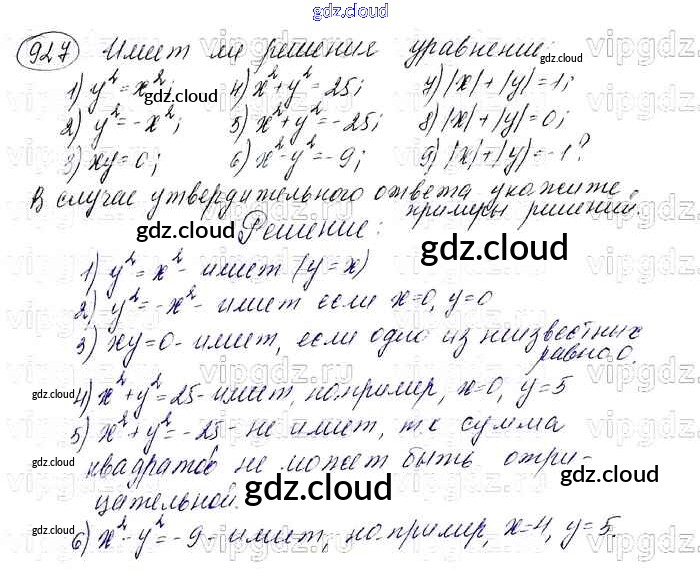 gdz.cloud
927 Имеет ли решения уравнение:
1) y² = x²; 4) x² + y² = 25; 7) |x| + |y| = 1;
2) y² = -x²; 5) x² + y² = -25; 8) |x| + |y| = 0;
3) xy = 0; 6) x² - y² = -9; 9) |x| + |y| = -1?
В случае утвердительного ответа укажите
примеры решений.
Решение:
1) y² = x² - имеет (y = x)
2) y² = -x² - имеет если x=0, y=0
3) xy=0 - имеет, если одно из неизвестных
равно 0.
4) x² + y² = 25 - имеет, например, x=0, y=5
5) x² + y² = -25 - не имеет, т к сумма
квадратов не может быть отри-
цательной.
6) x² - y² = -9 - имеет, например, x=4, y=5.